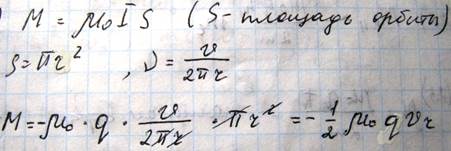 M = μ₀ I S (S - площадь орбиты)
S = πr² , ν = v / 2πr
M = -μ₀ · q · v / 2πr · πr² = - 1/2 μ₀ q v r